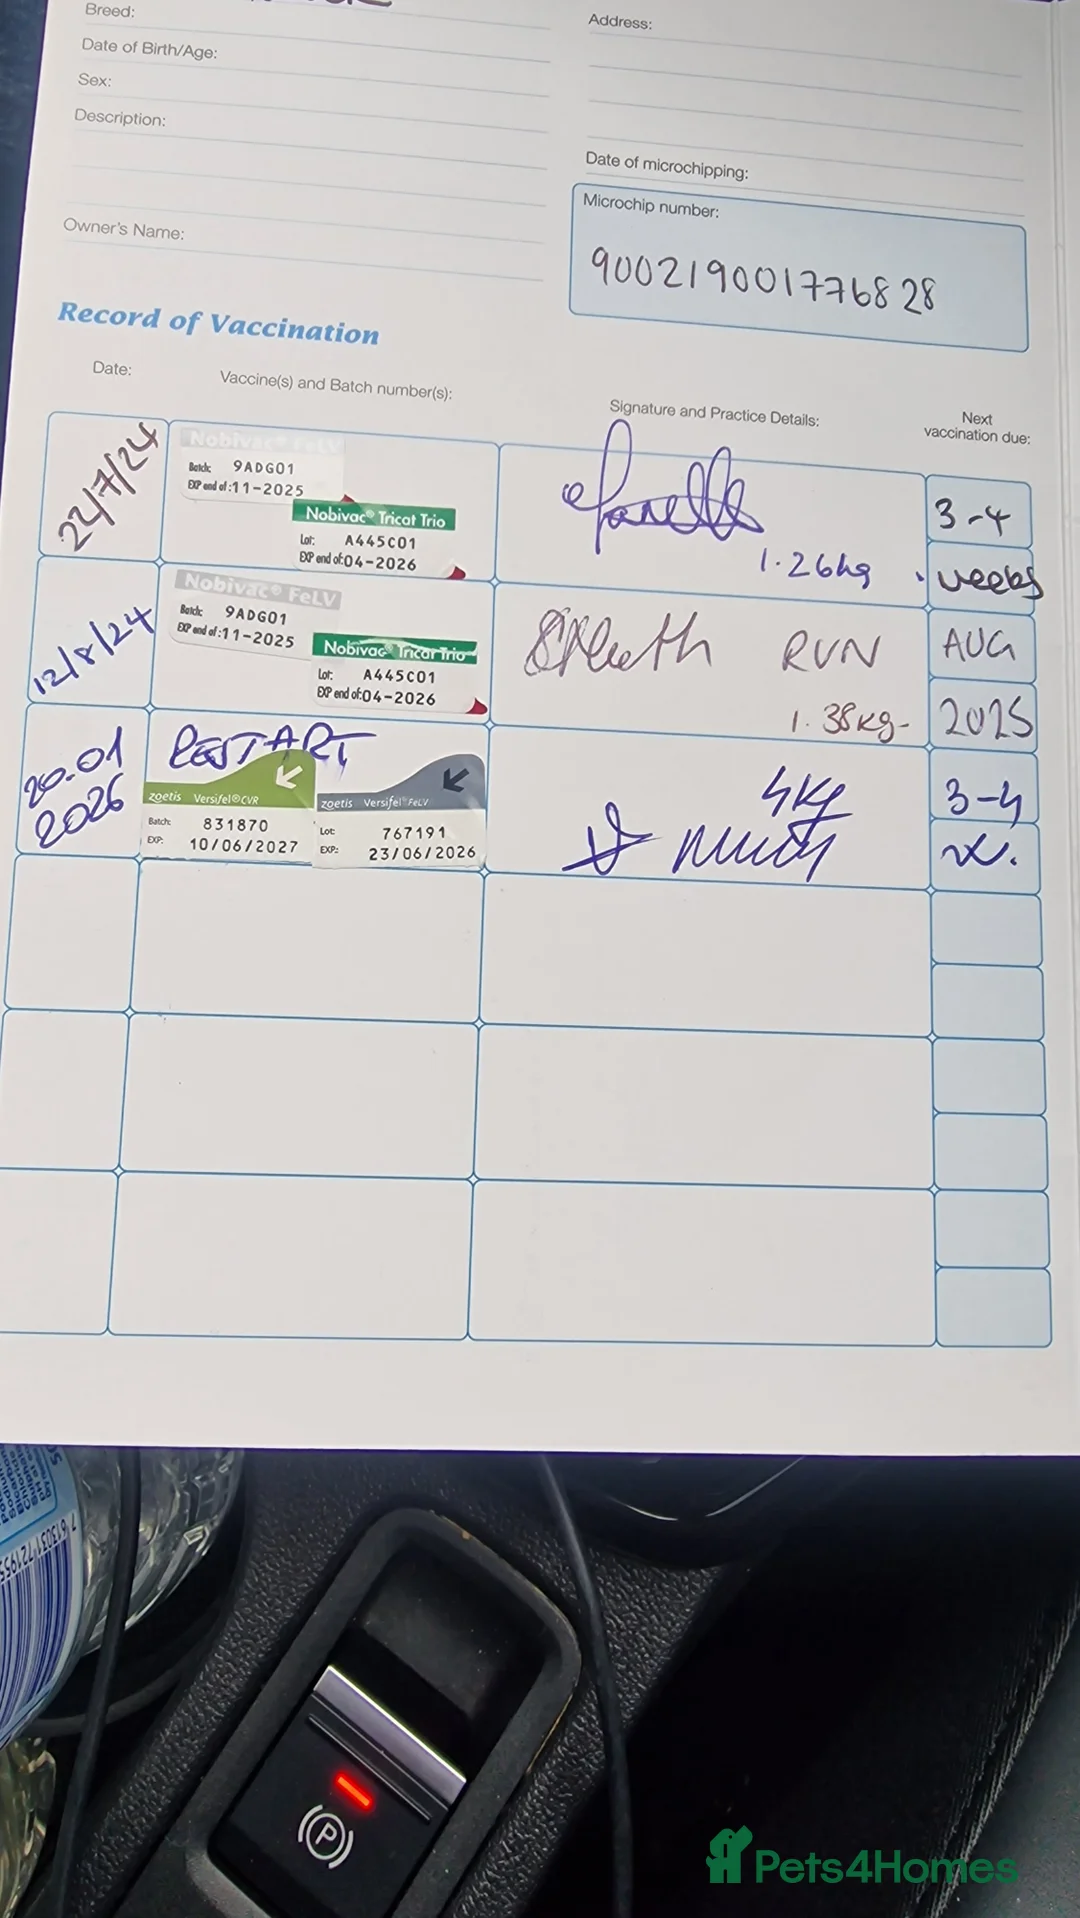 Breed:
Address:
Date of Birth/Age:
Sex:
Description:
Date of microchipping:
Microchip number:
Owner's Name:
900219001776828
Record of Vaccination
Date:
Vaccine(s) and Batch number(s):
Signature and Practice Details:
Next
vaccination due:
22/7/24
Nobivac® FeLV
Batch: 9ADG01
EXP end of: 11-2025
Nobivac® Tricat Trio
Lot: A445C01
EXP end of: 04-2026
1.26kg
3-4
weeks
12/8/24
Nobivac® FeLV
Batch: 9ADG01
EXP end of: 11-2025
Nobivac® Tricat Trio
Lot: A445C01
EXP end of: 04-2026
RVN
1.38kg-
AUG
2025
20.01
2026
RESTART
zoetis Versifel® CVR
Batch: 831870
EXP: 10/06/2027
zoetis Versifel® FeLV
Lot: 767191
EXP: 23/06/2026
4kg
3-4
P
Pets4Homes